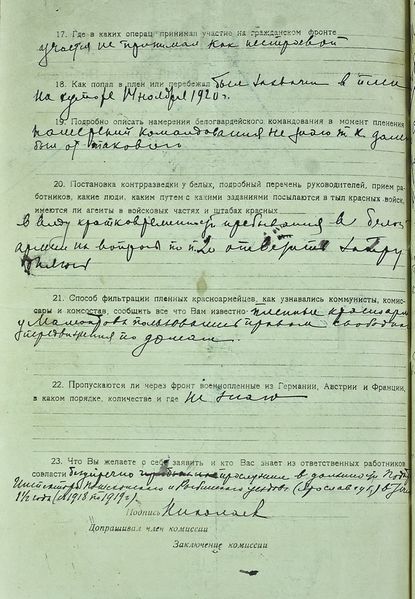 17. Где в каких операц принимал участие на гражданском фронте
участия не принимал как нестроевой
18. Как попал в плен или перебежал был захвачен в плен
на хуторе 14 ноября 1920 г.
19. Подробно описать намерения белогвардейского командования в момент пленения
намерений командования не знаю т.к. далек
был от такового
20. Постановка контрразведки у белых, подробный перечень руководителей, прием ра-
ботников, какие люди, каким путем с какими заданиями посылаются в тыл красных войск,
имеются ли агенты в войсковых частях и штабах красных
В виду кратковременного пребывания в белой
армии на вопросы по п. 20 ответить затру
21. Способ фильтрации пленных красноармейцев, как узнавались коммунисты, комис-
сары и комсостав, сообщить все что Вам известно пленные красноарм
у пользовались правом свободного
передвижения по домам
22. Пропускаются ли через фронт военнопленные из Германии, Австрии и Франции,
в каком порядке, количестве и где не знаю
23. Что Вы желаете о себе заявить и кто Вас знает из ответственных работников
совласти безупречно прослужил в должности
Инспектора Пошехонского и Рыбинского уездов (Ярослав губ)
1½ года (с 1918 по 1919 г.)
Подпись Николаев
Допрашивал член комиссии
Заключение комиссии